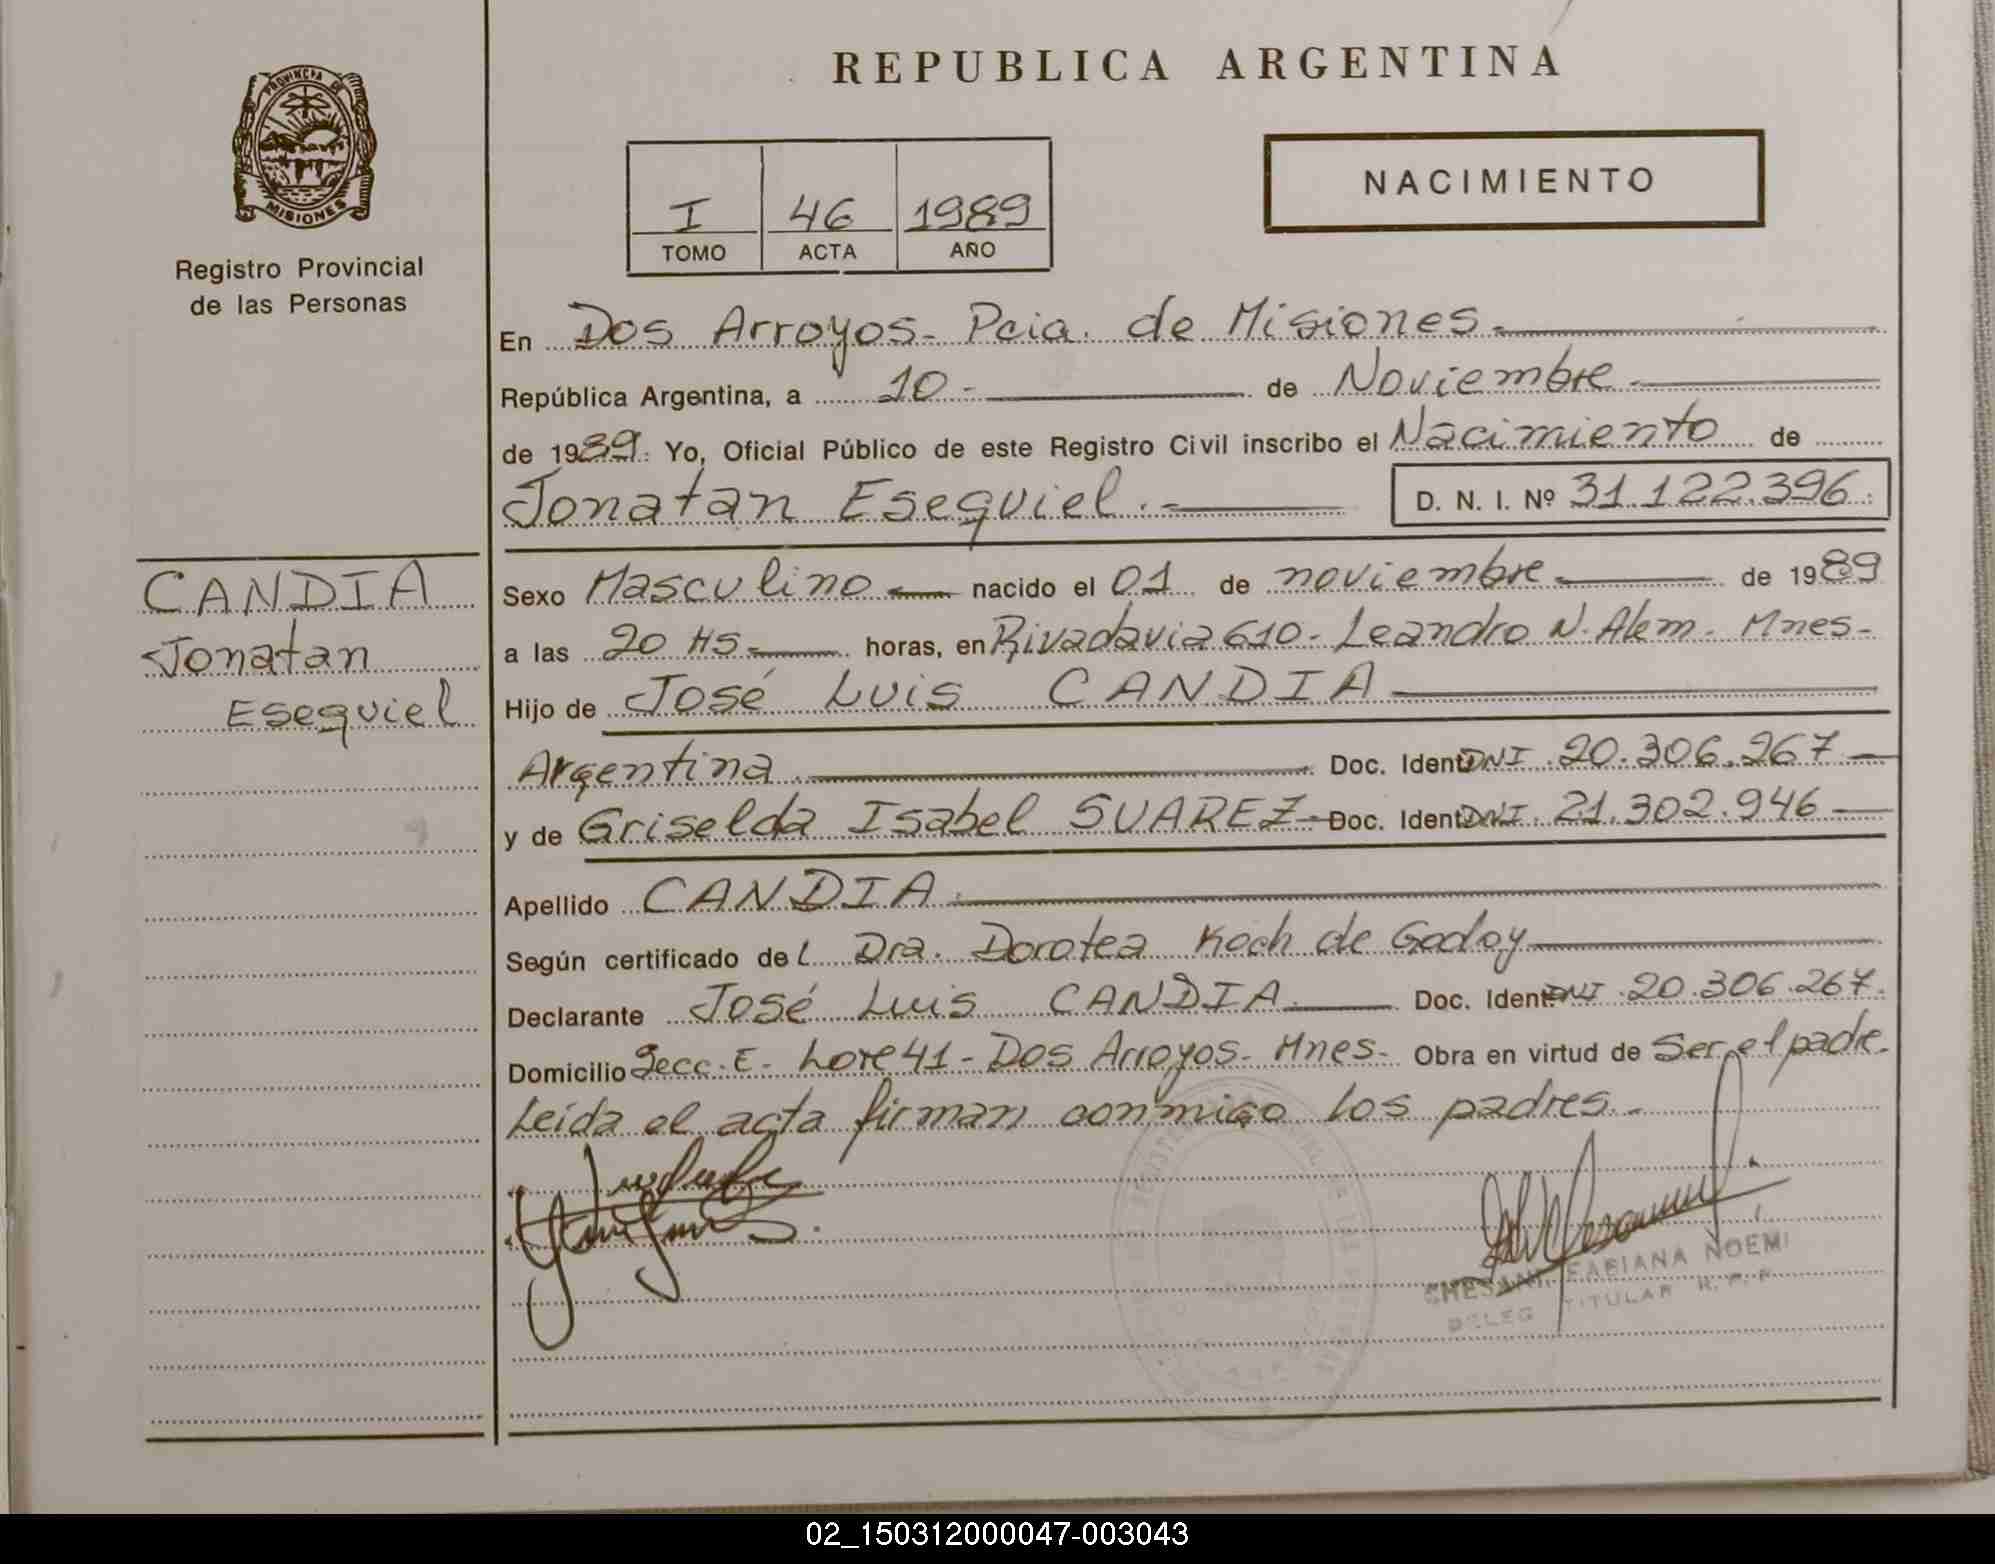 PROVINCIA DE
MISIONES
Registro Provincial
de las Personas
REPUBLICA ARGENTINA
NACIMIENTO
I 46 1989
TOMO ACTA AÑO
En Dos Arroyos- Pcia. de Misiones.
República Argentina, a 10- de Noviembre
de 1989. Yo, Oficial Público de este Registro Civil inscribo el Nacimiento de
Jonatan Esequiel. D. N. I. Nº 31.122.396
CANDIA
Jonatan
Esequiel
Sexo Masculino nacido el 01 de noviembre de 1989
a las 20 HS horas, en Rivadavia 610- Leandro N. Alem- Mnes-
Hijo de José Luis CANDIA
Argentina Doc. Ident. DNI 20.306.267
y de Griselda Isabel SUAREZ Doc. Ident. DNI. 21.302.946
Apellido CANDIA
Según certificado del Dra. Dorotea Koch de Godoy
Declarante José Luis CANDIA Doc. Ident. DNI 20.306.267.
Domicilio Secc. E- Lote 41- Dos Arroyos- Mnes- Obra en virtud de Ser el padre.
Leída el acta firman conmigo los padres.-
FABIANA NOEMI
DELEG TITULAR R. P. P.
02_150312000047-003043